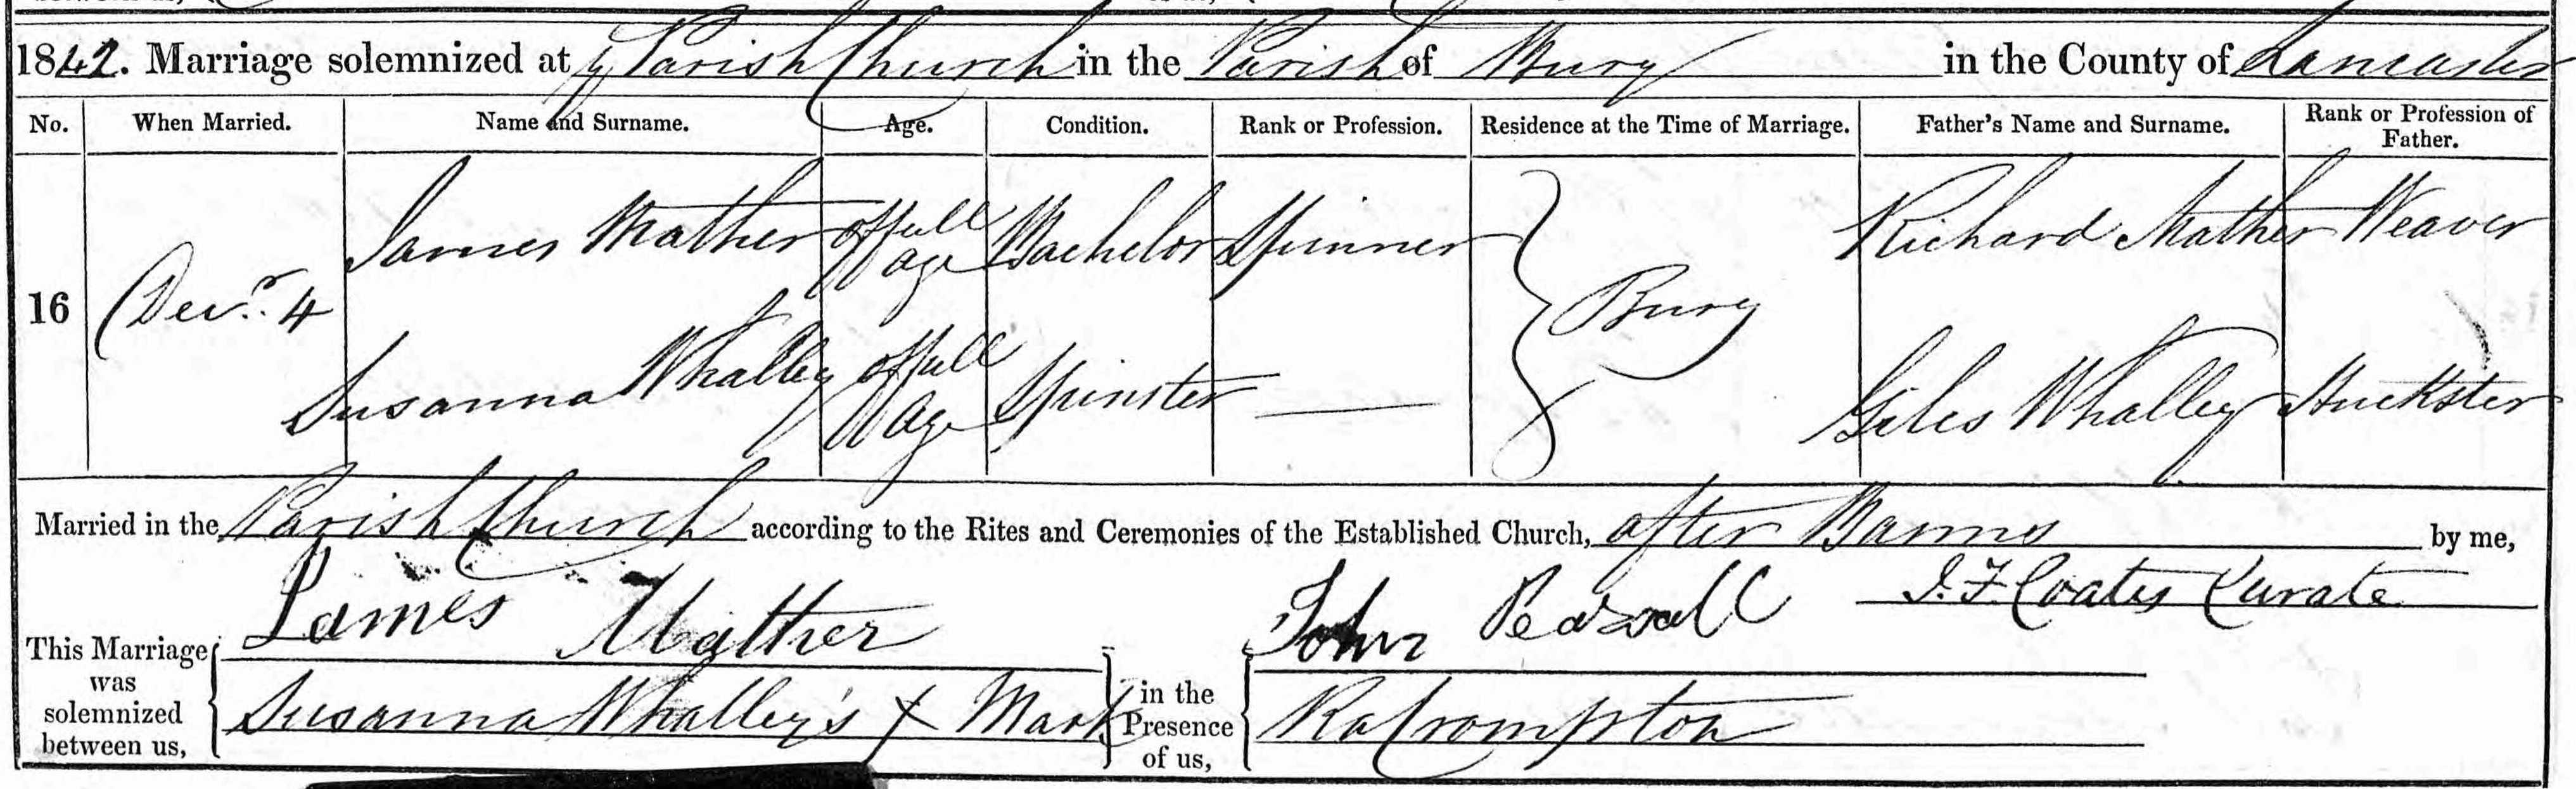 1842. Marriage solemnized at ye Parish Church in the Parish of Bury in the County of Lancaster
No. When Married. Name and Surname. Age. Condition. Rank or Profession. Residence at the Time of Marriage. Father's Name and Surname. Rank or Profession of Father.
James Mather of full age Bachelor Spinner Richard Mather Weaver
16 Decr. 4 Bury
Susanna Whalley of full age Spinster — Giles Whalley Huckster
Married in the Parish Church according to the Rites and Ceremonies of the Established Church, after Banns by me,
J. F. Coates Curate
This Marriage was solemnized between us, James Mather in the Presence of us, John
Susanna Whalley's X Mark Ra Crompton